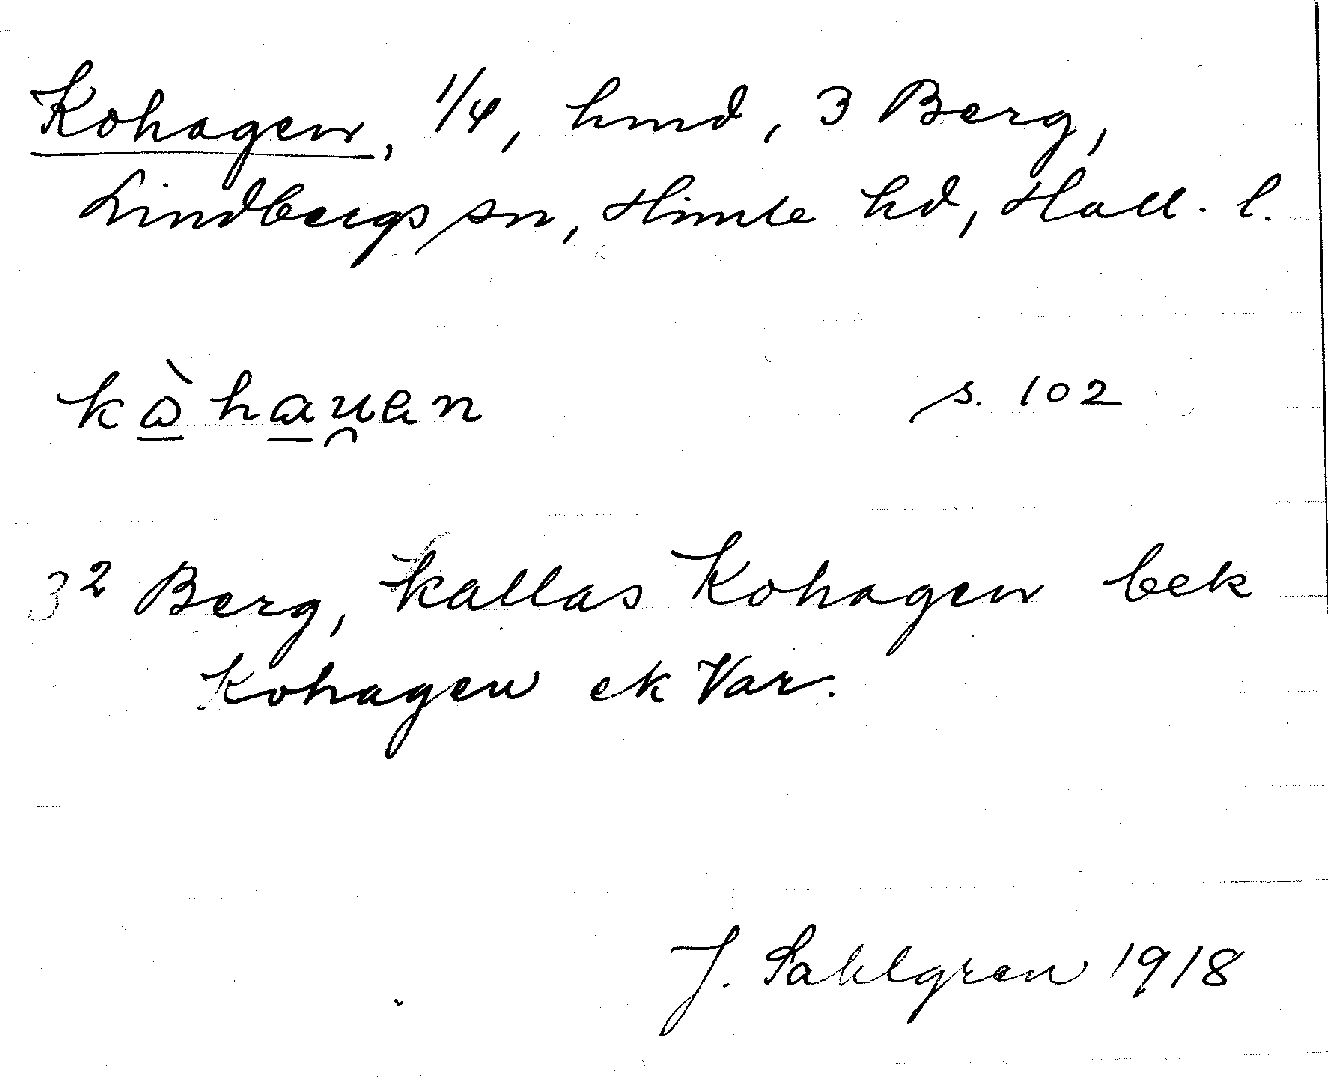 Kohagen, 1/4, hmd, 3 Berg,
Lindbergs sn, Himle hd, Hall. l.
kò̱ha̱u̯an s. 102
3² Berg, kallas Kohagen bek
Kohagen ek Var.
J. Sahlgren 1918